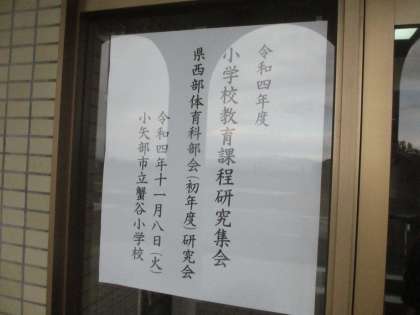 令和四年度
小学校教育課程研究集会
県西部体育科部会(初年度)研究会
令和四年十一月八日(火)
小矢部市立蟹谷小学校